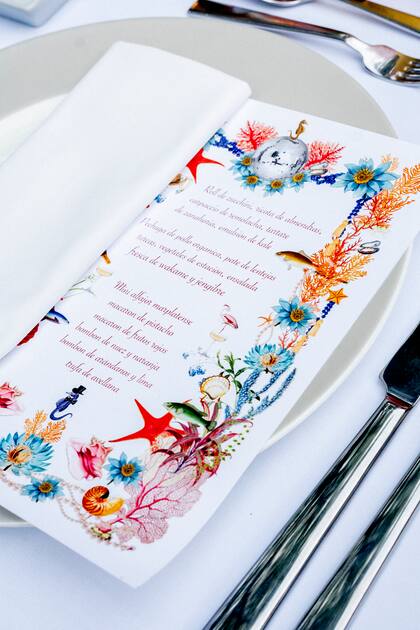 Roll de zucchini, ricota de almendras,
carpaccio de remolacha, tartare
de zanahoria, emulsión de kale
Pechuga de pollo orgánica, paté de lentejas
turcas, vegetales de estación, ensalada
fresca de wakame y jengibre
Mini alfajor marplatense
macaron de pistacho
macaron de frutos rojos
bombon de nuez y naranja
bombon de arandanos y lima
trufa de avellana